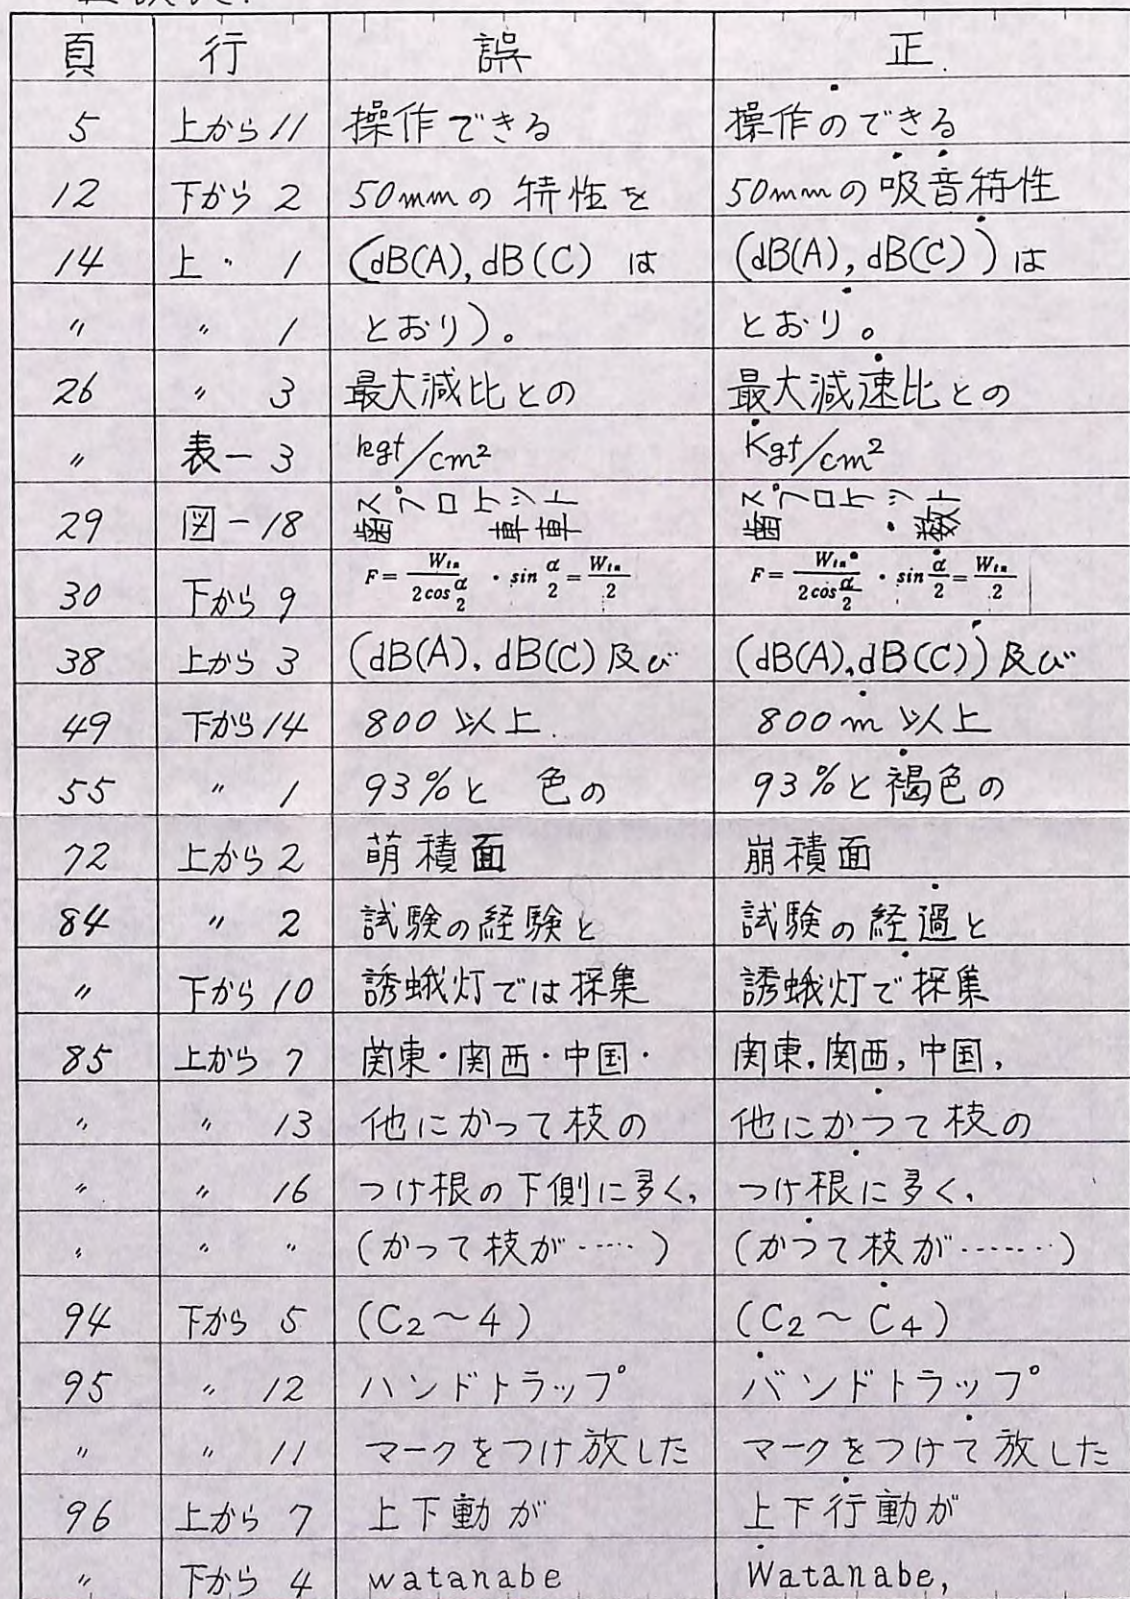 頁 行 誤 正
5 上から11 操作できる 操作のできる
12 下から 2 50mmの 特性を 50mmの吸音特性
14 上 〃 1 (dB(A), dB(C) は (dB(A), dB(C))は
〃 〃 1 とおり)。 とおり。
26 〃 3 最大減比との 最大減速比との
〃 表-3 kgf/cm² Kgf/cm²
29 図-18
30 下から 9 F=Wtn/2cosα/2・sin α/2=Wtn/2 F=Wtn/2cosα/2・sin α/2=Wtn/2
38 上から 3 (dB(A), dB(C)及び (dB(A), dB(C))及び
49 下から14 800 以上 800m以上
55 〃 1 93%と 色の 93%と褐色の
72 上から2 萌積面 崩積面
84 〃 2 試験の経験と 試験の経過と
〃 下から10 誘蛾灯では採集 誘蛾灯で採集
85 上から 7 関東・関西・中国・ 関東, 関西, 中国,
〃 〃 13 他にかって枝の 他にかつて枝の
〃 〃 16 つけ根の下側に多く, つけ根に多く,
〃 〃 〃 (かって枝が……) (かつて枝が……)
94 下から 5 (C₂~4) (C₂~C₄)
95 〃 12 ハンドトラップ バンドトラップ
〃 〃 11 マークをつけ放した マークをつけて放した
96 上から 7 上下動が 上下行動が
〃 下から 4 watanabe Watanabe,